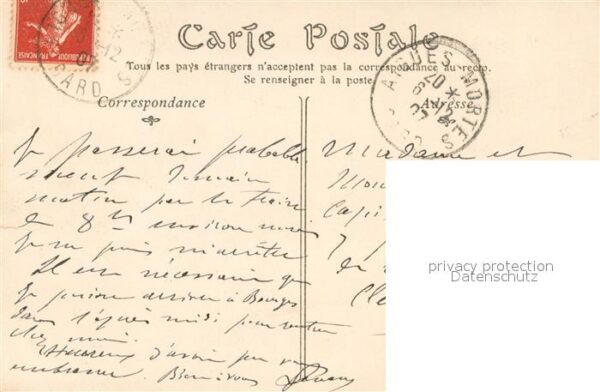 Carte Postale
Tous les pays étrangers n'acceptent pas la correspondance au recto.
Se renseigner à la poste.
Correspondance
Adresse
AIGUES-MORTES
20 *
6 -12
07
GARD
REPUBLIQUE FRANÇAISE
Je passerai probable
ment demain
matin par le train
de 8h environ mais
je ne puis m'arrêter
Il est nécessaire que
je puisse arriver à Bourges
dans l'après midi pour rentrer
chez moi.
Heureux d'avoir pu vous
embrasser. Bien à vous
Madame et
privacy protection
Datenschutz